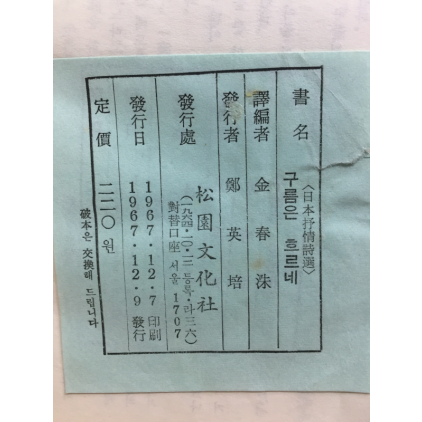 書名 〈日本抒情詩選〉
구름은 흐르네
譯編者 金春洙
發行者 鄭英培
發行處 松園文化社
(一九六四·一〇·一三 등록·라三六)
對替口座 서울 1707
發行日 1967·12·7 印刷
1967·12·9 發行
定價 二二〇원
破本은 交換해 드립니다